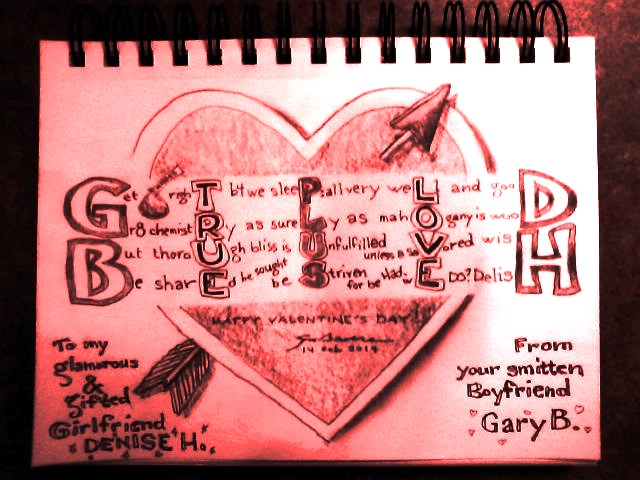 Get righT b4 we sleeP: all very weL and gooD
Gr8 chemistRy as sureLy as mahOgany is woo
But thoroUgh bliss is Unfulfilled unless a saVored wisH
Be sharEd be sought be Striven for be Had, wE DO? Delis
HAPPY VALENTINE'S DAY!
14 Feb 2014
To my
glamorous
&
gifted
Girlfriend
DENISE H.
From
your smitten
Boyfriend
Gary B.